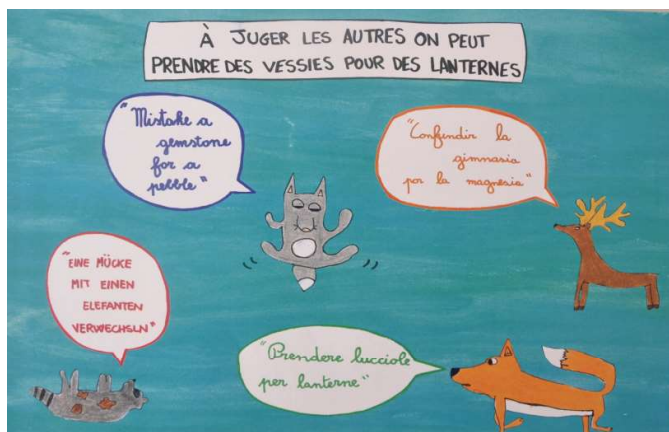 À JUGER LES AUTRES ON PEUT
PRENDRE DES VESSIES POUR DES LANTERNES
"Mistake a
gemstone
for a
pebble"
"Confundir la
gimnasia
por la magnesia"
"EINE MÜCKE
MIT EINEN
ELEFANTEN
VERWECHSLN"
"Prendere lucciole
per lanterne"